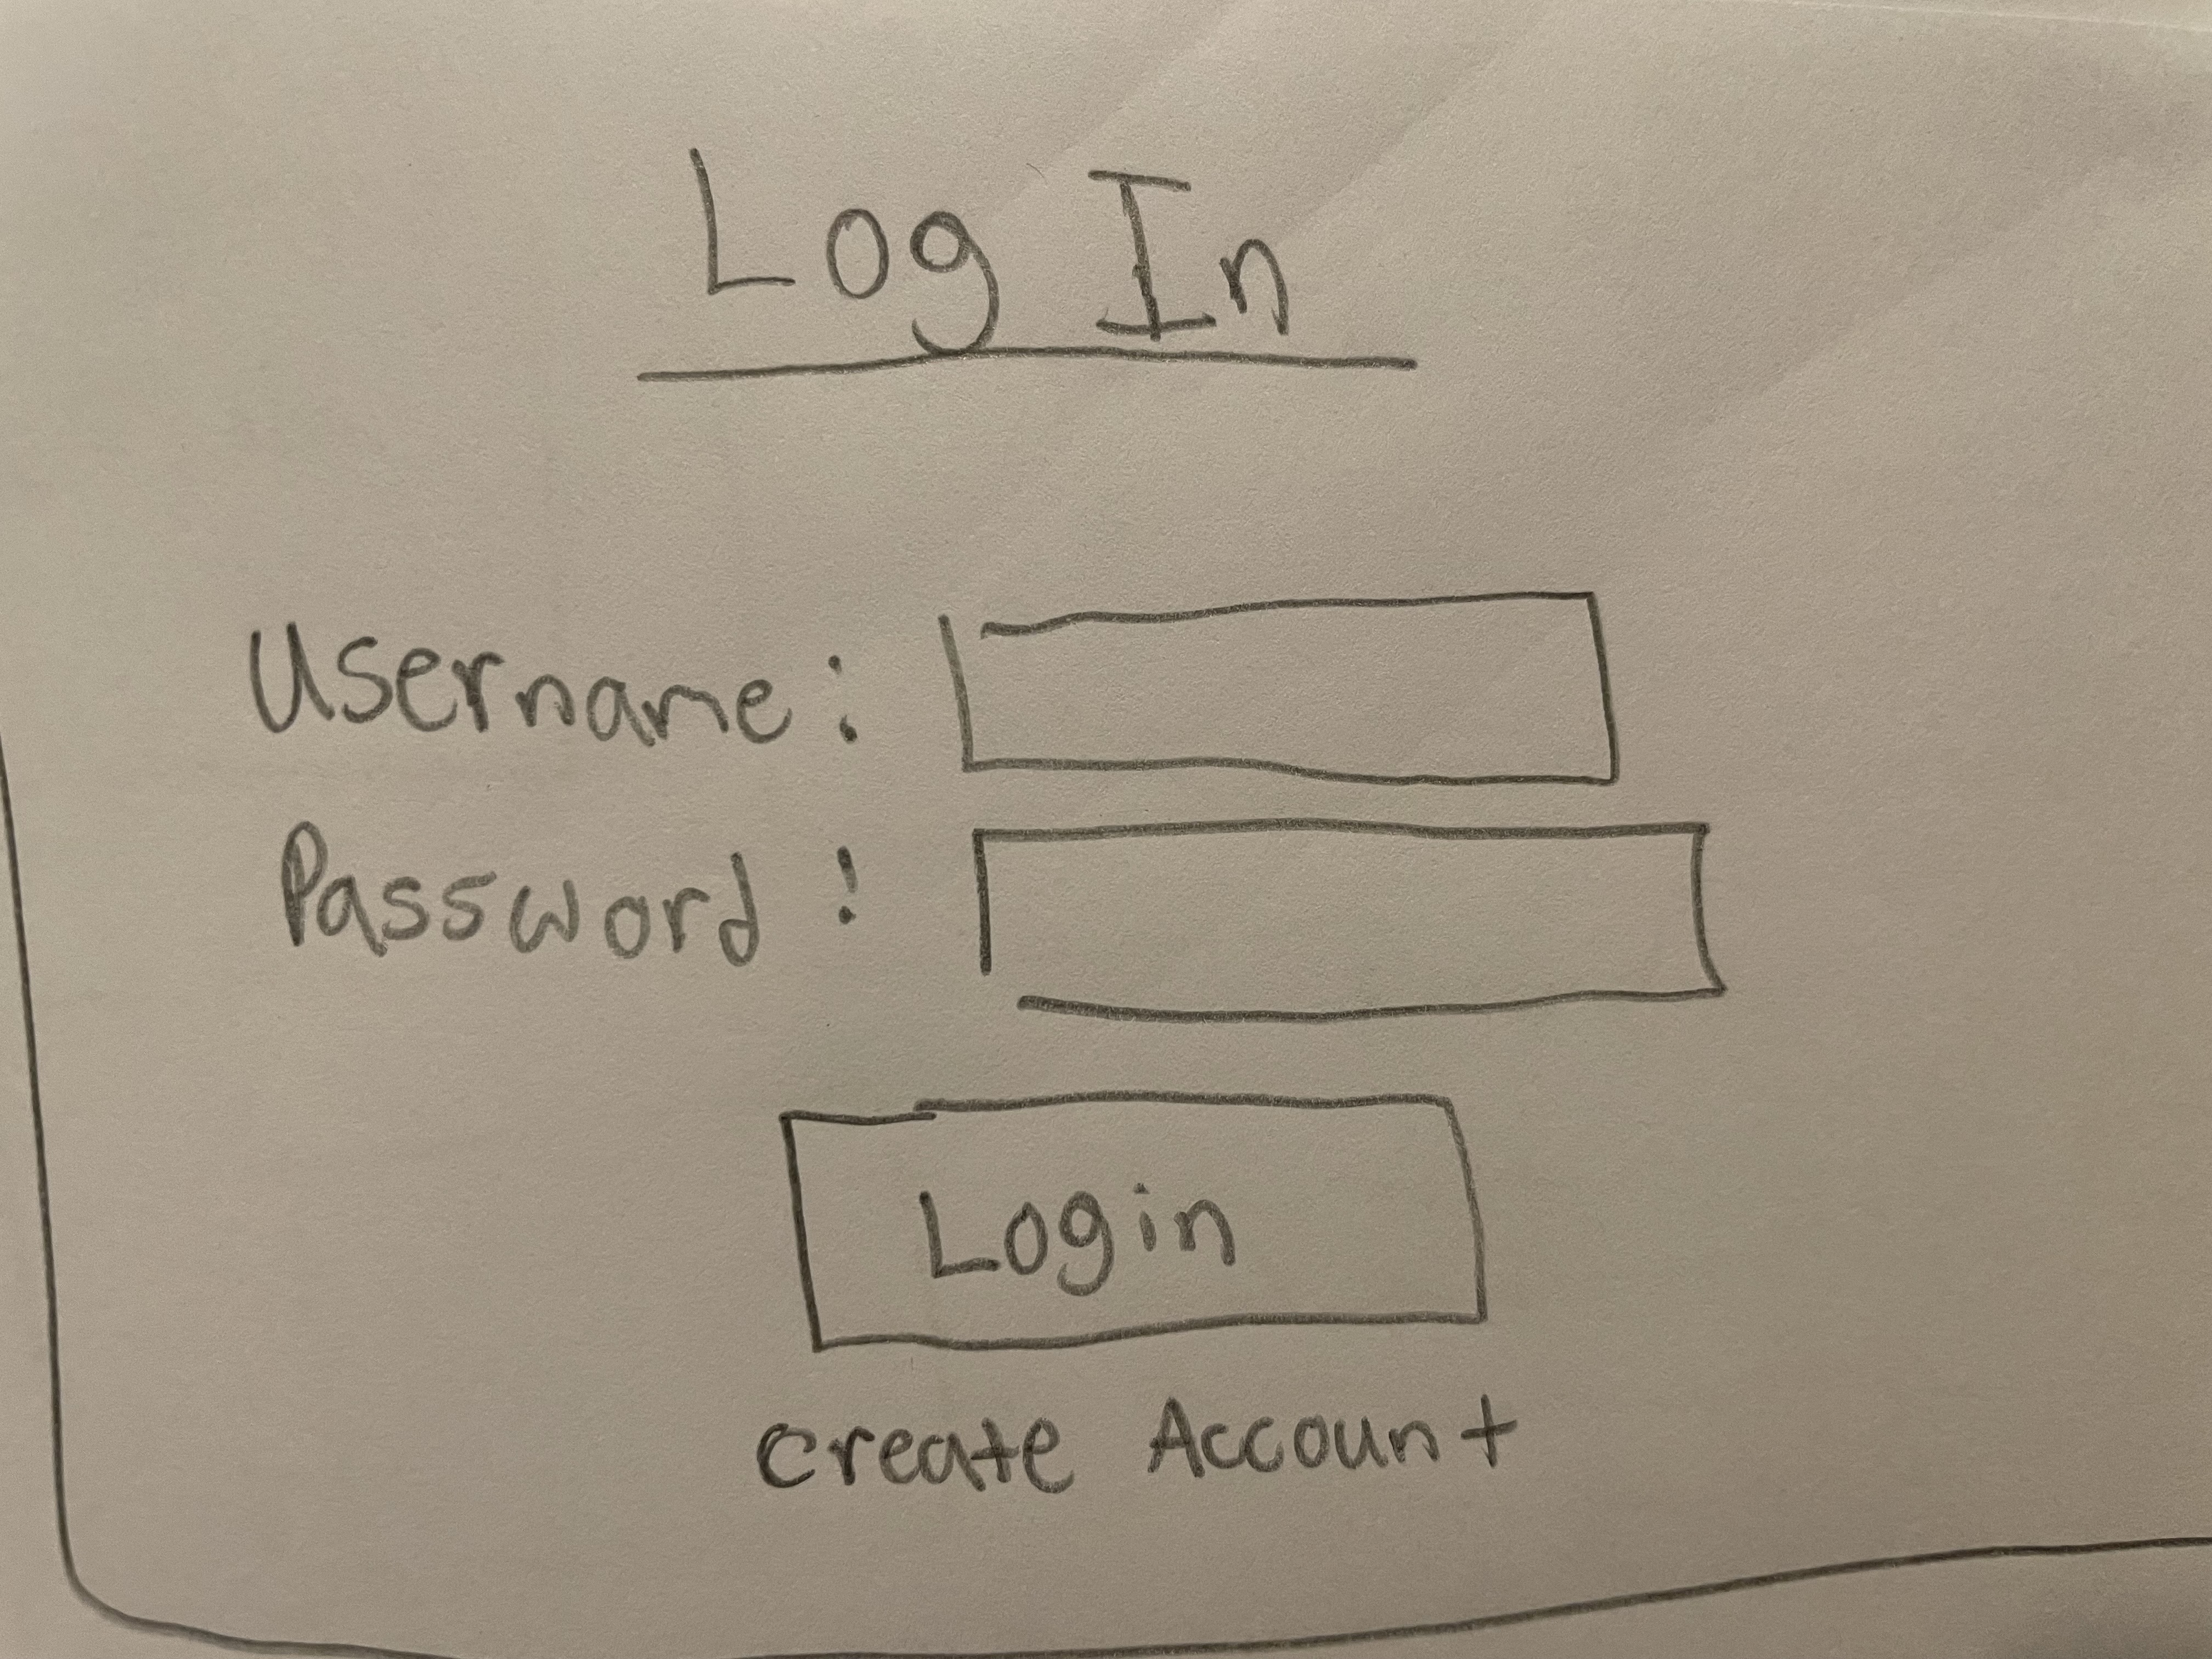 Log In
Username:
Password:
Login
Create Account